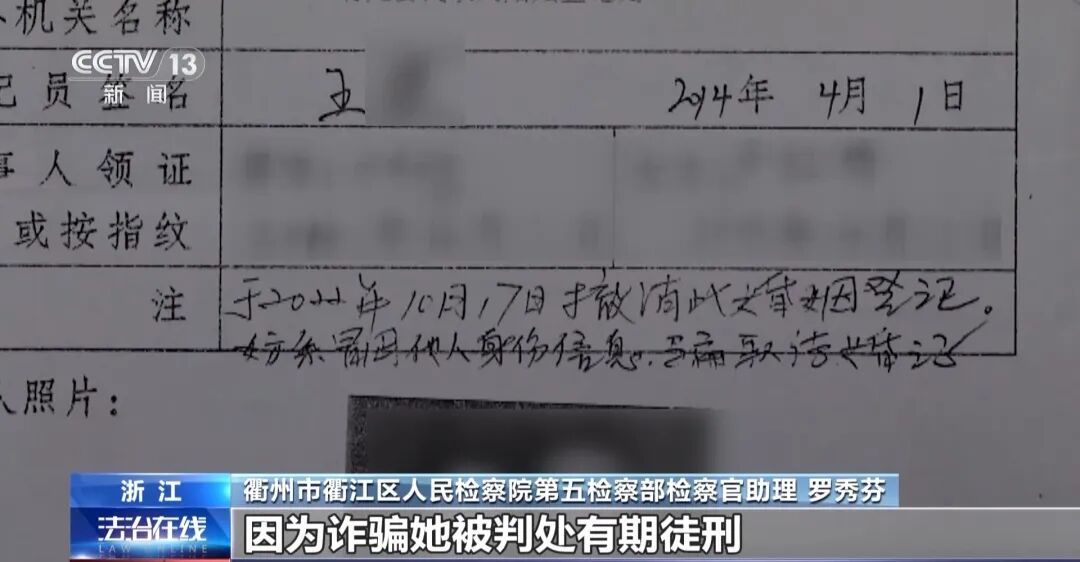 机关名称
CCTV 13
新闻
记员签名
王
2014年 4月 1日
事人领证
或按指纹
注
于2022年10月17日撤消此次婚姻登记。
女方系冒用他人身份信息
人照片:
浙江
衢州市衢江区人民检察院第五检察部检察官助理 罗秀芬
法治在线
LAW ONLINE
因为诈骗她被判处有期徒刑